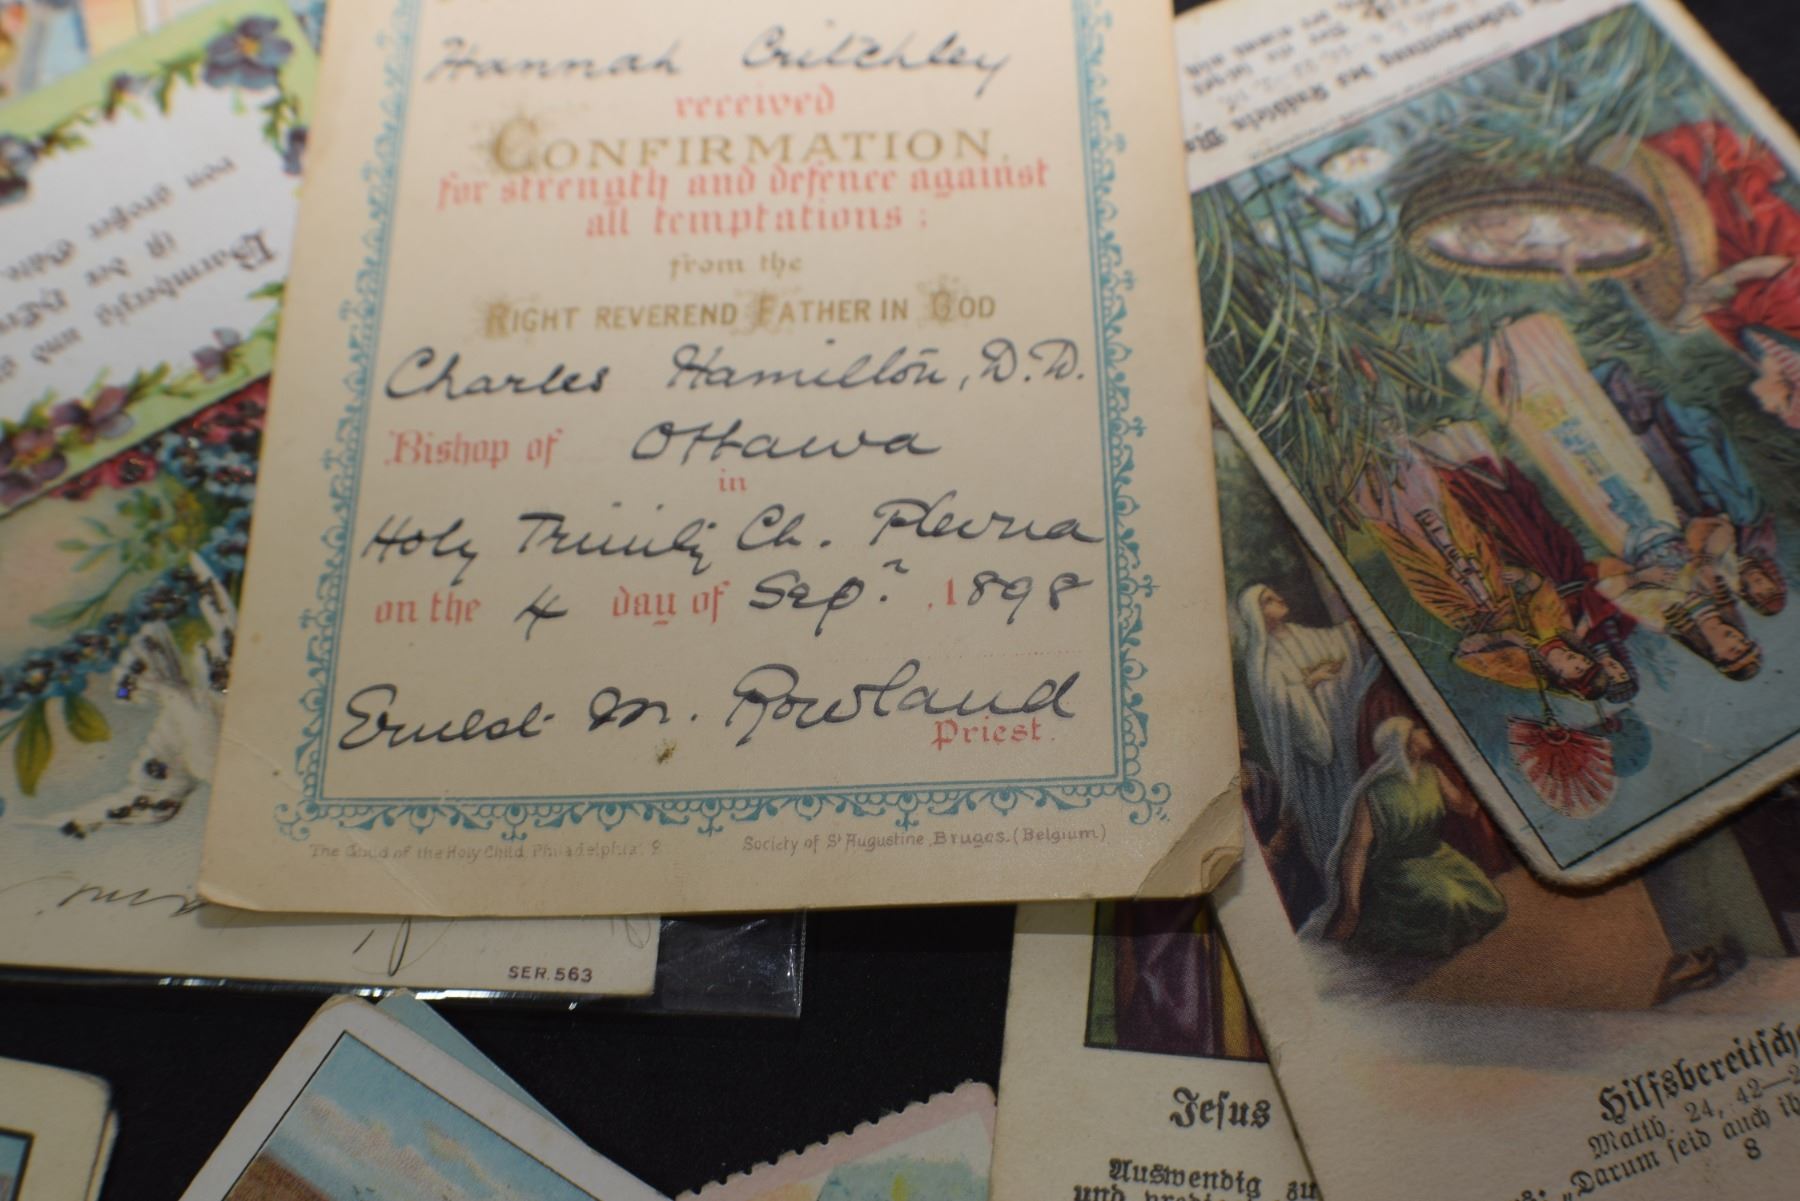 Hannah Critchley
received
CONFIRMATION
for strength and defence against
all temptations :
from the
RIGHT REVEREND FATHER IN GOD
Charles Hamilton, D.D.
Bishop of Ottawa
in
Holy Trinity Ch. Plevna
on the 4 day of Sep.r 1898
Ernest M. Rowland
Priest.
The Guild of the Holy Child, Philadelphia. 9
Society of St Augustine, Bruges. (Belgium)
SER. 563
Barmherzig und
ist der
von großer Güte.
Jesus
Auswendig zu
und
Hilfsbereitsch
Matth. 24, 42—
„Darum seid auch ih
8